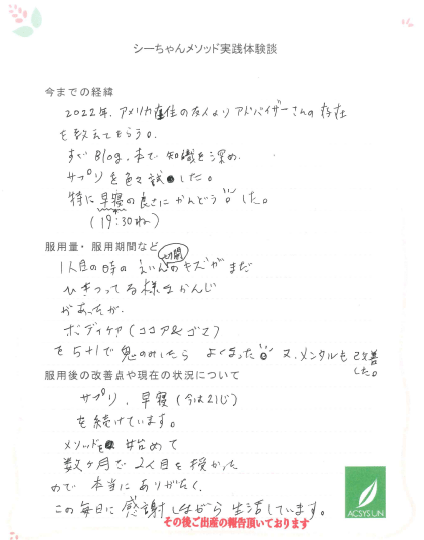 シーちゃんメソッド実践体験談
今までの経緯
2022年、アメリカ在住の友人よりアドバイザーさんの存在
を教えてもらう。
すぐBlog、本で知識を深め
サプリを色々試した。
特に早寝の良さにかんどうした。
(19:30ね)
服用量・服用期間など
切開
1人目の時のえいんのキズがまだ
ひきつってる様なかんじ
があったが、
ボディケア(ココア&ゴマ)
を5+1で鬼のみしたら よくなった 又、メンタルも改善
した。
服用後の改善点や現在の状況について
サプリ、早寝(今は21じ)
を続けています。
メソッドを始めて
数ヶ月で2人目を授かった
ので本当にありがたく、
この毎日に感謝しながら生活しています。
その後ご出産の報告頂いております
ACSYSUN.